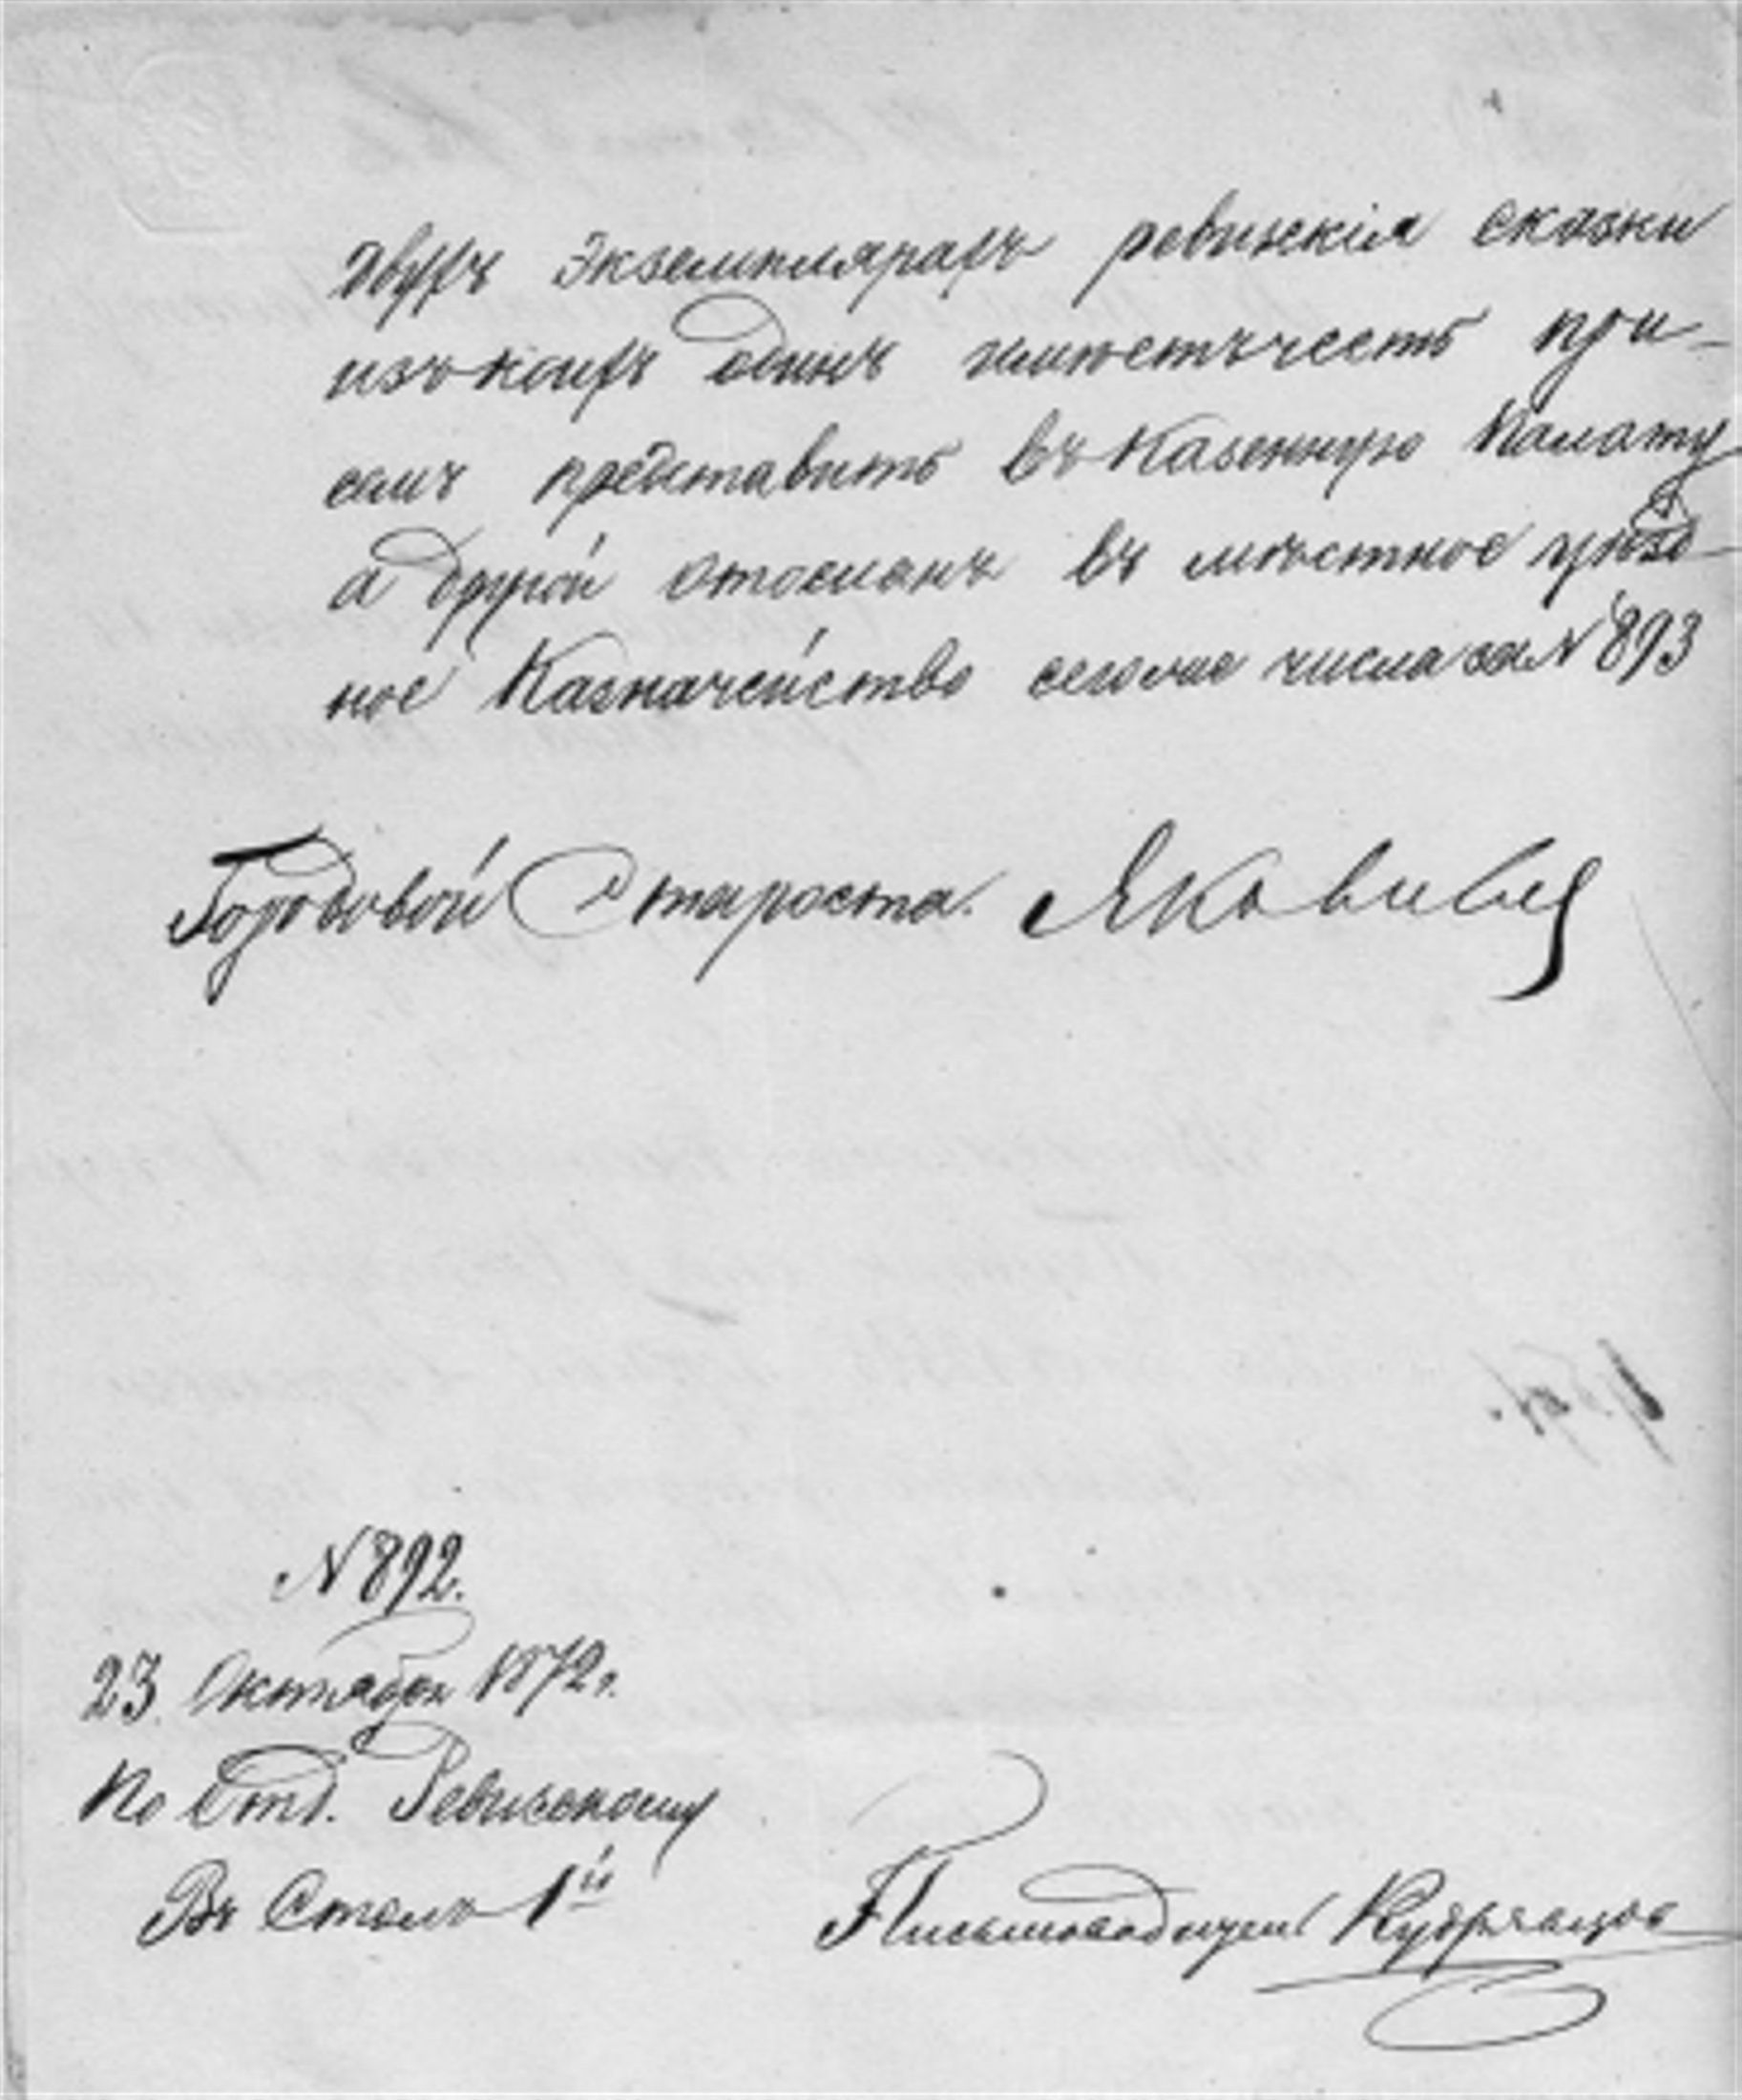 двухъ экземплярахъ ревижскія сказки
изъ коихъ одинъ имѣетъ честь при-
семъ представить въ Казенную Палату
а другой отосланъ въ мѣстное уѣзд-
ное Казначейство сегоже числа за N 893
Городовой Староста. Яковлевъ
N 892.
23 Октября 1872 г.
По Отд. Ревизскому
Въ Столъ 1й
Письмоводитель Кудрявцовъ